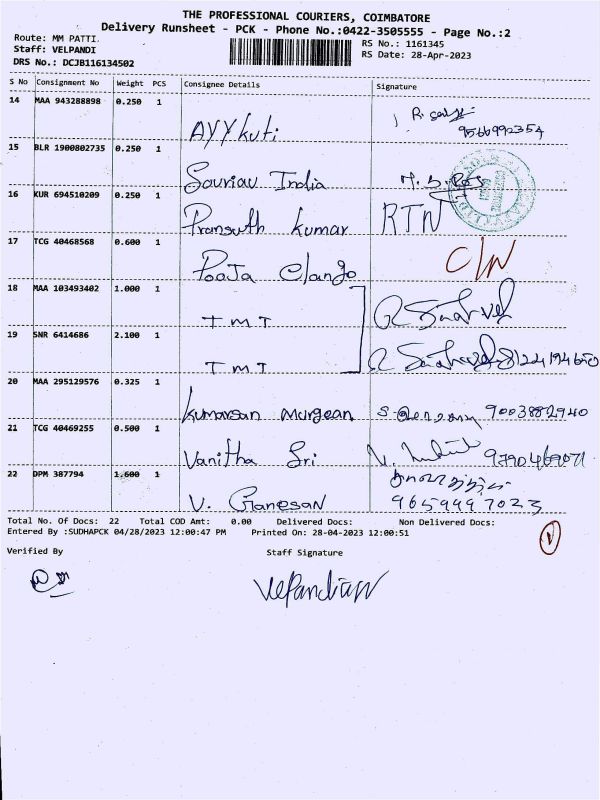 THE PROFESSIONAL COURIERS, COIMBATORE
Delivery Runsheet - PCK - Phone No.:0422-3505555 - Page No.:2
Route: MM PATTI. RS No.: 1161345
Staff: VELPANDI RS Date: 28-Apr-2023
DRS No.: DCJB116134502
S No Consignment No Weight PCS Consignee Details Signature
14 MAA 943288898 0.250 1 Ayykuti 9566992354
15 BLR 1900802735 0.250 1 Sourav India
16 KUR 694510209 0.250 1 kumar RTN
17 TCG 40468568 0.600 1 Pooja Elango C/N
18 MAA 103493402 1.000 1 TMT
19 SNR 6414686 2.100 1 TMT
20 MAA 295129576 0.325 1 9003882940
21 TCG 40469255 0.500 1 Vanitha Sri
22 DPM 387794 1.600 1 V. Ganesan 9659497023
Total No. Of Docs: 22 Total COD Amt: 0.00 Delivered Docs: Non Delivered Docs:
Entered By :SUDHAPCK 04/28/2023 12:00:47 PM Printed On: 28-04-2023 12:00:51
Verified By Staff Signature
Velpandian